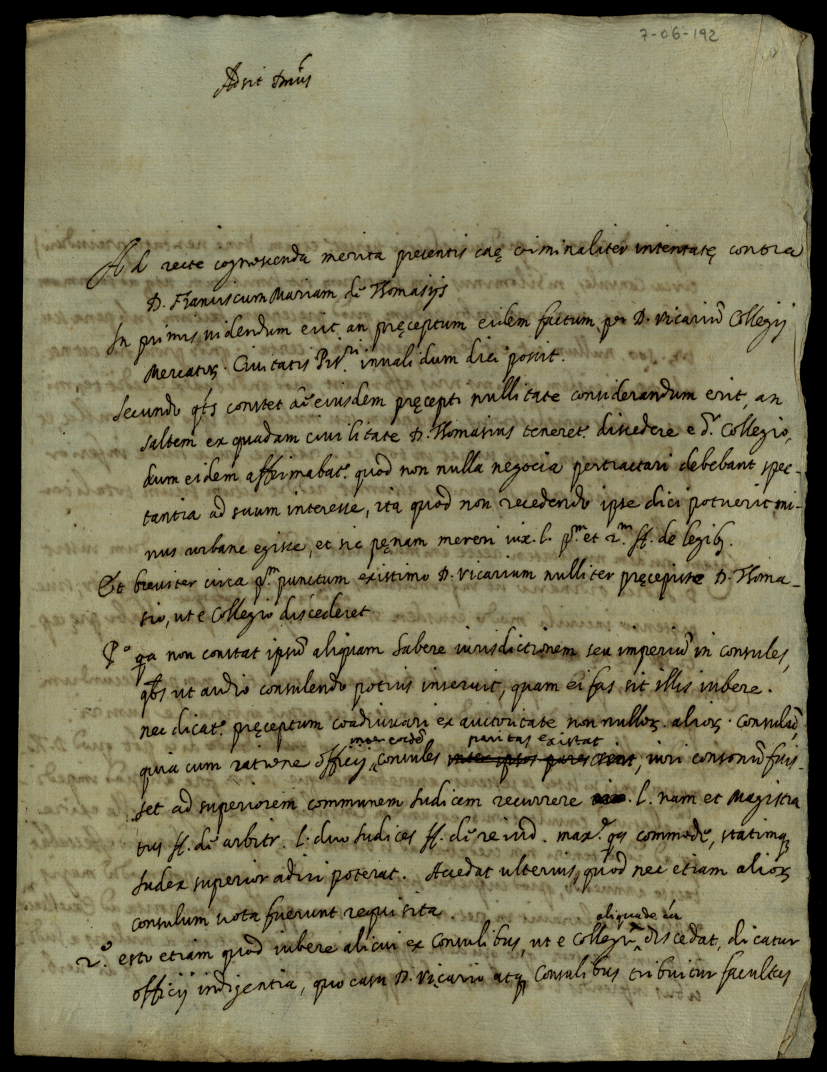 7-06-192
Adsit Dnus
Ad recte cognoscenda merita presentis caę criminaliter intentatę contra
D. Franciscum Mariam de Thomasijs
In primis videndum erit an pręceptum eidem factum per D. Vicariũ Collegij
Mercatoꝝ Civitatis Pis.ri invalidum dici possit.
Secundo qts constet de eiusdem pręcepti nullitate considerandum erit, an
saltem ex quadam civilitate D. Thomasius teneret.r discedere e d.o Collegio,
dum eidem affirmabat.r quod non nulla negocia pertractari debebant spec-
tantia ad suum interesse, ita quod non recedendo ipse dici potuerit mi-
nus urbane egisse, et sic pęnam mereri iux. l. p.m et 2.m ff. de legib.
Et breviter circa p.m punctum existimo D. Vicarium nulliter pręcepisse D. Thoma-
sio, ut e Collegio discederet
P.o qa non constat ipsũ aliquam habere iurisdictionem seu imperiũ in consules,
qbs ut audio consulendo potius inservit, quam ei fas sit illis iubere.
nec dicat.r pręceptum coadiuvari ex auctoritate non nulloꝝ alioꝝ Consulũ,
inter eosdẽ paritas existat
quia cum ratione officij consules inter ipsos pares, iuri consonũ fuis-
set ad superiorem communem Iudicem recurrere l. nam et Magistra
tus ff. de arbitr. l. duo Iudices ff. de re iud. max.e qa commode, statimq
Iudex superior adiri poterat. Accedat ulterius, quod nec etiam alioꝝ
consulum vota fuerunt requisita.
aliqua de cã
2.o esto etiam quod iubere alicui ex Consulibus, ut e Collegio discedat, dicatur
officij indigentia, quo casu D. Vicario atq Consulibus tribuitur facultas